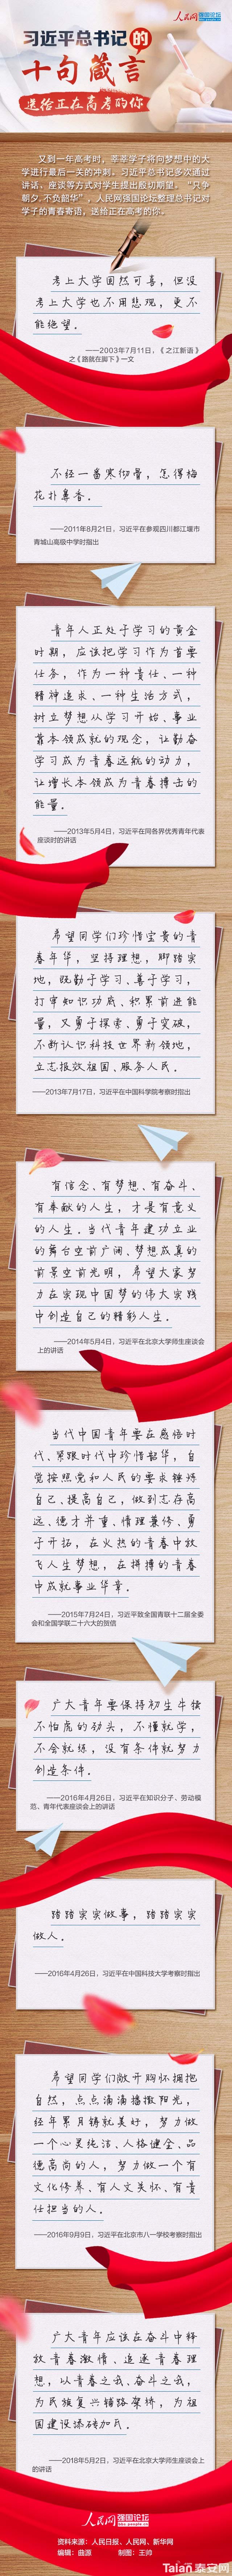 人民网 强国论坛
习近平总书记的
十句箴言
送给正在高考的你
又到一年高考时，莘莘学子将向梦想中的大
学进行最后一关的冲刺。习近平总书记多次通过
讲话、座谈等方式对学生提出殷切期望。“只争
朝夕，不负韶华”，人民网强国论坛整理总书记对
学子的青春寄语，送给正在高考的你。
考上大学固然可喜，但没
考上大学也不用悲观，更不
能绝望。
——2003年7月11日，《之江新语》
之《路就在脚下》一文
不经一番寒彻骨，怎得梅
花扑鼻香。
——2011年8月21日，习近平在参观四川都江堰市
青城山高级中学时指出
青年人正处于学习的黄金
时期，应该把学习作为首要
任务，作为一种责任、一种
精神追求、一种生活方式，
树立梦想从学习开始、事业
靠本领成就的观念，让勤奋
学习成为青春远航的动力，
让增长本领成为青春搏击的
能量。
——2013年5月4日，习近平在同各界优秀青年代表
座谈时的讲话
希望同学们珍惜宝贵的青
春年华，坚持理想，脚踏实
地，既勤于学习、善于学习，
打牢知识功底、积累前进能
量，又勇于探索、勇于突破，
不断认识科技世界新领地，
立志报效祖国、服务人民。
——2013年7月17日，习近平在中国科学院考察时指出
有信念、有梦想、有奋斗、
有奉献的人生，才是有意义
的人生。当代青年建功立业
的舞台空前广阔、梦想成真的
前景空前光明，希望大家努
力在实现中国梦的伟大实践
中创造自己的精彩人生。
——2014年5月4日，习近平在北京大学师生座谈会
上的讲话
当代中国青年要在感悟时
代、紧跟时代中珍惜韶华，自
觉按照党和人民的要求锤炼
自己、提高自己，做到志存高
远、德才并重、情理兼修、勇
于开拓，在火热的青春中放
飞人生梦想，在拼搏的青春
中成就事业华章。
——2015年7月24日，习近平致全国青联十二届全委
会和全国学联二十六大的贺信
广大青年要保持初生牛犊
不怕虎的劲头，不懂就学，
不会就练，没有条件就努力
创造条件。
——2016年4月26日，习近平在知识分子、劳动模
范、青年代表座谈会上的讲话
踏踏实实做事，踏踏实实
做人。
——2016年4月26日，习近平在中国科技大学考察时指出
希望同学们敞开胸怀拥抱
自然，点点滴滴播撒阳光，
经年累月铸就美好，努力做
一个心灵纯洁、人格健全、品
德高尚的人，努力做一个有
文化修养、有人文关怀、有责
任担当的人。
——2016年9月9日，习近平在北京市八一学校考察时指出
广大青年应该在奋斗中释
放青春激情、追逐青春理
想，以青春之我、奋斗之我，
为民族复兴铺路架桥，为祖
国建设添砖加瓦。
——2018年5月2日，习近平在北京大学师生座谈会上
的讲话
人民网 强国论坛
资料来源：人民日报、人民网、新华网
编辑：曲源 制图：王帅
Taian泰安网